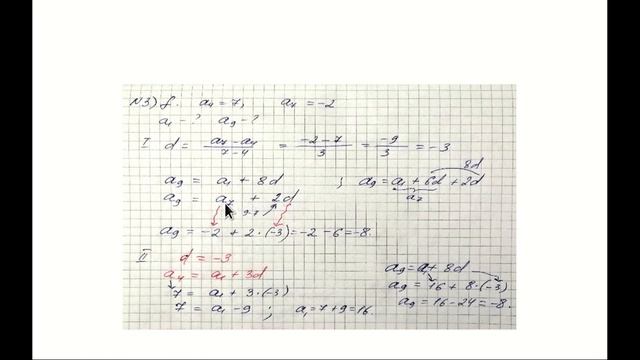 N3) f. a₄ = 7, a₇ = -2
a₁ - ? a₉ - ?
I d = (a₇ - a₄)/(7 - 4) = (-2 - 7)/3 = -9/3 = -3
8d
a₉ = a₁ + 8d ; a₉ = a₁ + 6d + 2d
a₇
a₉ = a₇ + 2d
9-7
a₉ = -2 + 2·(-3) = -2 - 6 = -8.
II d = -3
a₄ = a₁ + 3d
7 = a₁ + 3·(-3)
7 = a₁ - 9 ; a₁ = 7 + 9 = 16.
a₉ = a₁ + 8d
a₉ = 16 + 8·(-3)
a₉ = 16 - 24 = -8.